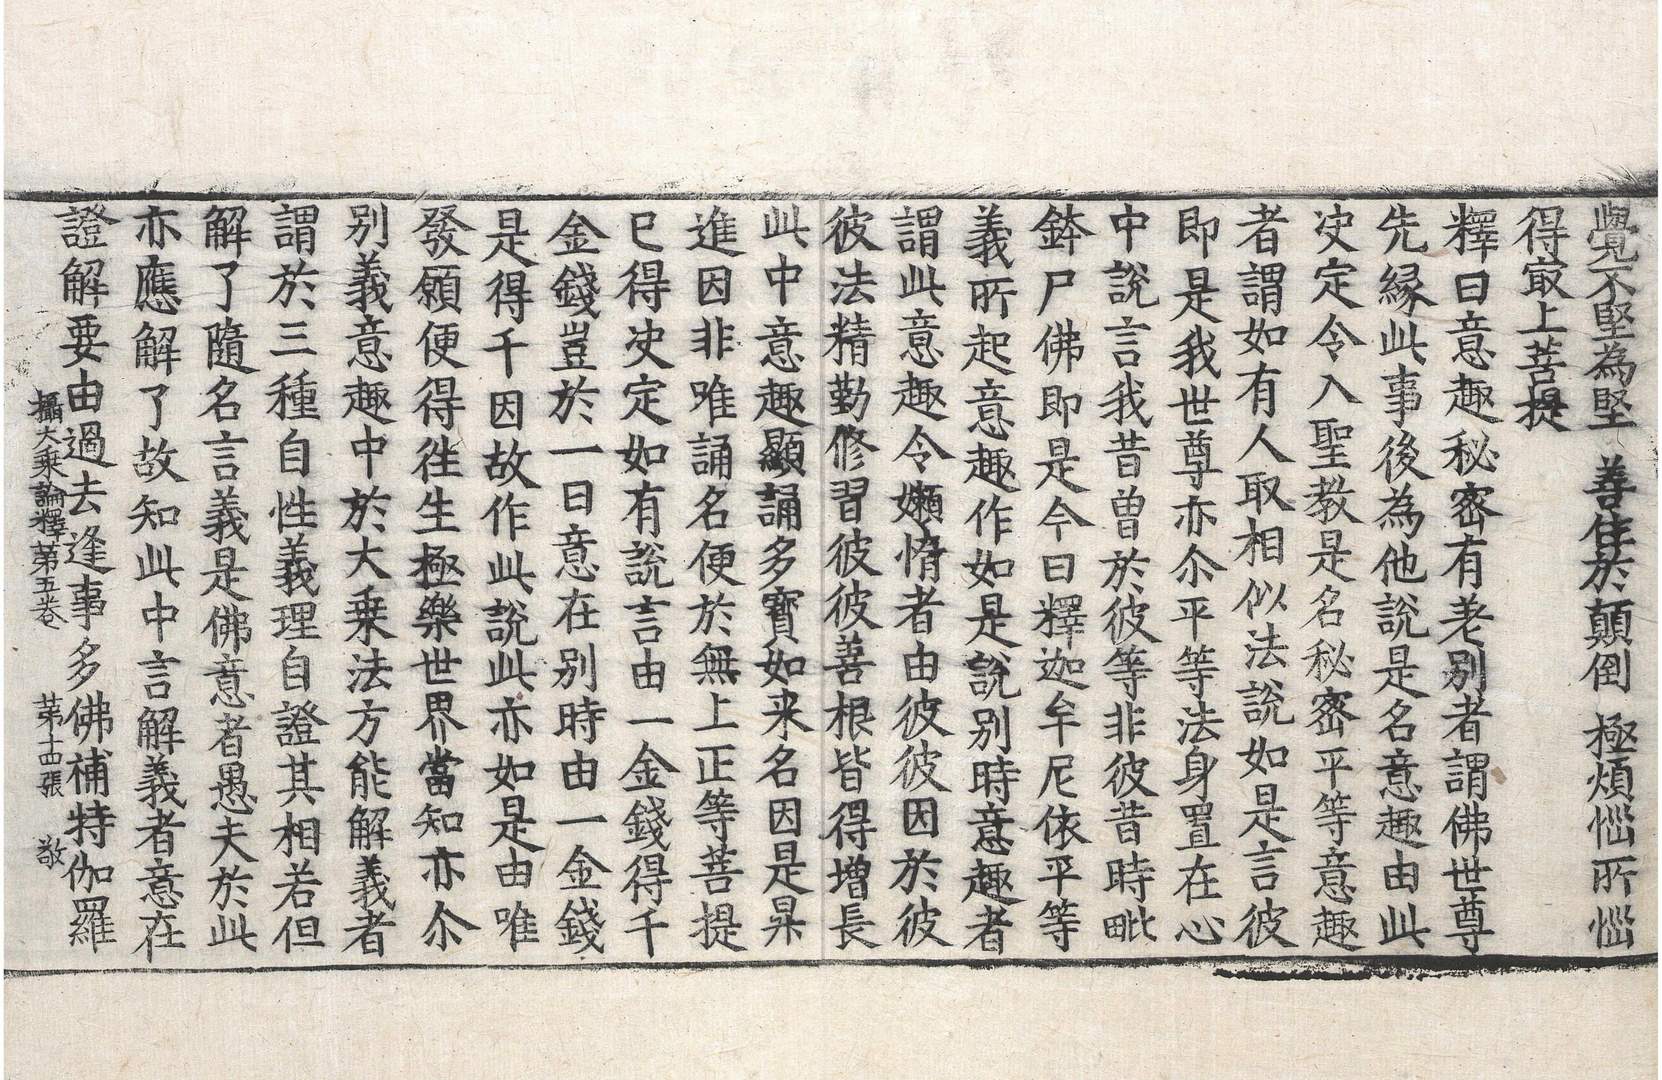 覺不堅為堅 善住於顛倒 極煩惱所惱
得㝡上菩提
釋曰意趣秘密有差別者謂佛世尊
先緣此事後為他說是名意趣由此
决定令入聖教是名秘密平等意趣
者謂如有人取相似法說如是言彼
即是我世尊亦尒平等法身置在心
中說言我昔曾於彼等非彼昔時毗
鉢尸佛即是今日釋迦牟尼依平等
義所起意趣作如是說別時意趣者
謂此意趣令嬾惰者由彼彼因於彼
彼法精勤修習彼彼善根皆得增長
此中意趣顯誦多寶如来名因是昇
進因非唯誦名便於無上正等菩提
已得决定如有說言由一金錢得千
金錢豈於一日意在別時由一金錢
是得千因故作此說此亦如是由唯
發願便得徃生極樂世界當知亦尒
別義意趣中於大乗法方能解義者
謂於三種自性義理自證其相若但
解了隨名言義是佛意者愚夫於此
亦應解了故知此中言解義者意在
證解要由過去逢事多佛補特伽羅
攝大乗論釋第五卷 第十四張 敬